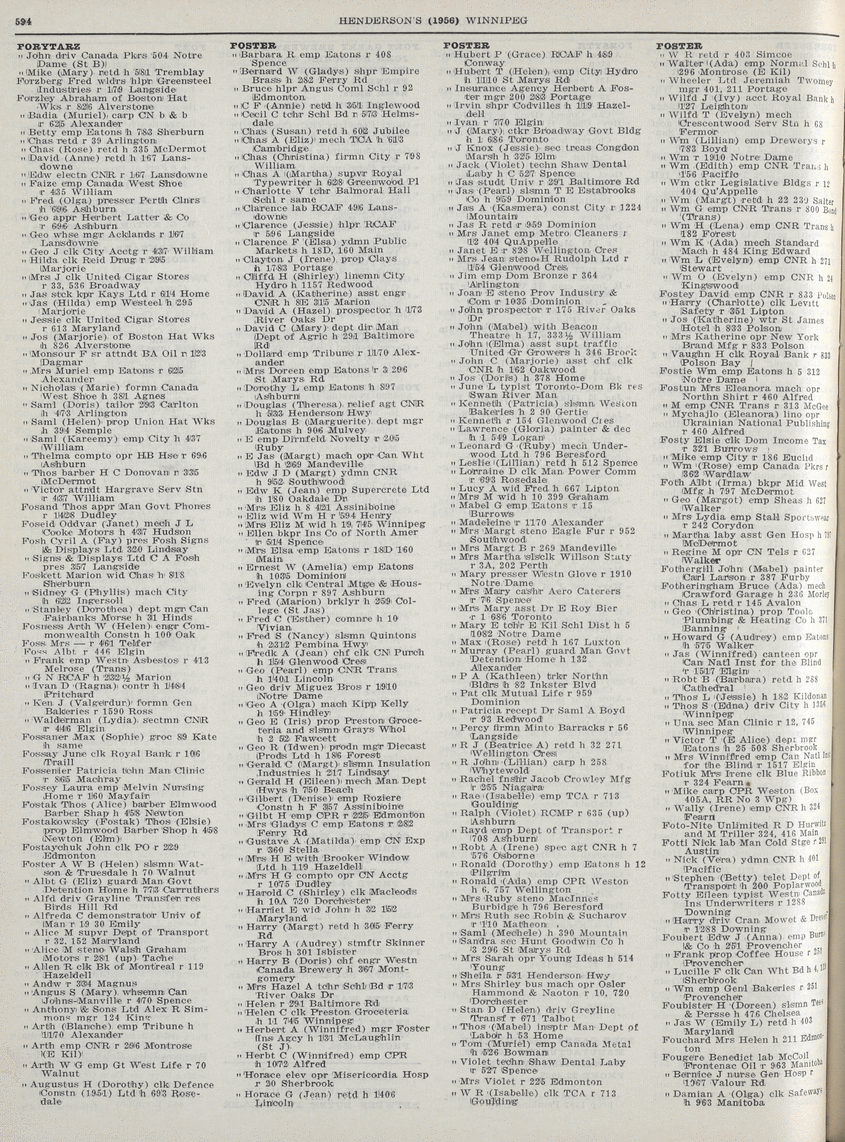 594
HENDERSON'S (1956) WINNIPEG
FORYTARZ
" John driv Canada Pkrs 504 Notre
Dame (St B)
" Mike (Mary) retd h 581 Tremblay
Forzberg Fred wldrs hlpr Greensteel
Industries r 179 Langside
Forzley Abraham of Boston Hat
Wks r 826 Alverstone
" Badia (Muriel) carp CN b & b
r 625 Alexander
" Betty emp Eatons h 783 Sherburn
" Chas retd r 39 Arlington
" Chas (Rose) retd h 335 McDermot
" David (Anne) retd h 167 Lans-
downe
" Edw electn CNR r 167 Lansdowne
" Faize emp Canada West Shoe
r 435 William
" Fred (Olga) presser Perth Clnrs
h 696 Ashburn
" Geo appr Herbert Latter & Co
r 696 Ashburn
" Geo whse mgr Acklands r 167
Lansdowne
" Geo J clk City Acctg r 437 William
" Hilda clk Reid Drug r 295
Marjorie
" Mrs J clk United Cigar Stores
r 33, 536 Broadway
" Jas stek kpr Kays Ltd r 614 Home
" Jas (Hilda) emp Westeel h 295
Marjorie
" Jessie clk United Cigar Stores
r 613 Maryland
" Jos (Marjorie) of Boston Hat Wks
h 826 Alverstone
" Monsour F sr attndt BA Oil r 123
Dagmar
" Mrs Muriel emp Eatons r 625
Alexander
" Nicholas (Marie) formn Canada
West Shoe h 381 Agnes
" Saml (Doris) tailor 293 Carlton
h 473 Arlington
" Saml (Helen) prop Union Hat Wks
h 394 Semple
" Saml (Kareemy) emp City h 437
William
" Thelma compto opr HB Hse r 696
Ashburn
" Thos barber H C Donovan r 335
McDermot
" Victor attndt Hargrave Serv Stn
r 437 William
Fosand Thos appr Man Govt Phones
r 1428 Dudley
Foseid Oddvar (Janet) mech J L
Cooke Motors h 437 Hudson
Fosh Cyril A (Fay) pres Fosh Signs
& Displays Ltd 320 Lindsay
" Signs & Displays Ltd C A Fosh
pres 357 Langside
Foskett Marion wid Chas h 818
Sherburn
" Sidney G (Phyllis) mach City
h 622 Ingersoll
" Stanley (Dorothea) dept mgr Can
Fairbanks Morse h 31 Hinds
Fosness Arth W (Helen) engr Com-
monwealth Constn h 100 Oak
Foss Mrs — r 461 Telfer
Foss Albt r 446 Elgin
" Frank emp Westn Asbestos r 413
Melrose (Trans)
" G N RCAF h 232½ Marion
" Ivan D (Ragna) contr h 1484
Pritchard
" Ken J (Valgerdur) formn Gen
Bakeries r 1590 Ross
" Walderman (Lydia) sectmn CNR
r 446 Elgin
Fossaner Max (Sophie) groc 89 Kate
h same
Fossay June clk Royal Bank r 106
Traill
Fossenier Patricia tchr Man Clinic
r 865 Machray
Fossey Laura emp Melvin Nursing
Home r 160 Mayfair
Fostak Thos (Alice) barber Elmwood
Barber Shap h 458 Newton
Fostakowsky (Fostak) Thos (Elsie)
prop Elmwood Barber Shop h 458
Newton (Elm)
Fostaychuk John clk PO r 229
Edmonton
Foster A W B (Helen) slsmn Wat-
son & Truesdale h 70 Walnut
" Albt G (Eliz) guard Man Govt
Detention Home h 773 Carruthers
" Alfd driv Grayline Transfer res
Birds Hill Rd
" Alfreda C demonstrator Univ of
Man r 19 30 Emily
" Alice M supvr Dept of Transport
r 32, 152 Maryland
" Alice M steno Walsh Graham
Motors r 281 (up) Tache
" Allen R clk Bk of Montreal r 119
Hazeldell
" Andw r 334 Magnus
" Angus S (Mary) whsemn Can
Johns-Manville r 470 Spence
" Anthony & Sons Ltd Alex R Sim-
mons mgr 124 King
" Arth (Blanche) emp Tribune h
1170 Alexander
" Arth emp CNR r 296 Montrose
(E Kil)
" Arth W G emp Gt West Life r 70
Walnut
" Augustus H (Dorothy) clk Defence
Constn (1951) Ltd h 693 Rose-
dale
FOSTER
" Barbara R emp Eatons r 408
Spence
" Bernard W (Gladys) shpr Empire
Brass h 282 Ferry Rd
" Bruce hlpr Angus Coml Schl r 92
Edmonton
" C F (Annie) retd h 351 Inglewood
" Cecil C tchr Schl Bd r 573 Helms-
dale
" Chas (Susan) retd h 602 Jubilee
" Chas A (Eliz) mech TCA h 613
Cambridge
" Chas (Christina) firmn City r 798
William
" Chas A (Martha) supvr Royal
Typewriter h 628 Greenwood Pl
" Charlotte V tchr Balmoral Hall
Schl r same
" Clarence lab RCAF 496 Lans-
downe
" Clarence (Jessie) hlpr RCAF
r 596 Langside
" Clarence F (Elsa) ydmn Public
Markets h 18D, 160 Main
" Clayton J (Irene) prop Clays
h 1783 Portage
" Cliffd H (Shirley) linemn City
Hydro h 1157 Redwood
" David A (Katherine) asst engr
CNR h 8E 315 Marion
" David A (Hazel) prospector h 173
River Oaks Dr
" David C (Mary) dept dir Man
Dept of Agric h 291 Baltimore
Rd
" Dollard emp Tribune r 1170 Alex-
ander
" Mrs Doreen emp Eatons r 3 296
St Marys Rd
" Dorothy L emp Eatons h 897
Ashburn
" Douglas (Theresa) relief agt CNR
h 533 Henderson Hwy
" Douglas B (Marguerite) dept mgr
Eatons h 906 Mulvey
" E emp Dirnfeld Novelty r 205
Ruby
" E Jas (Margt) mach opr Can Wht
Bd h 269 Mandeville
" Edw J D (Margt) ydmn CNR
h 952 Southwood
" Edw K (Jean) emp Supercrete Ltd
h 180 Oakdale Dr
" Mrs Eliz h 8 421 Assiniboine
" Eliz wid Wm H r 594 Henry
" Mrs Eliz M wid h 19, 745 Winnipeg
" Ellen bkpr Ins Co of North Amer
r 514 Spence
" Mrs Elsa emp Eatons r 18D 160
Main
" Ernest W (Amelia) emp Eatons
h 1035 Dominion
" Evelyn clk Central Mtge & Hous-
ing Corpn r 897 Ashburn
" Fred (Marion) brklyr h 259 Col-
lege (St Jas)
" Fred C (Esther) comnre h 10
Vivian
" Fred S (Nancy) slsmn Quintons
h 2312 Pembina Hwy
" Fredk A (Jean) chf clk CN Purch
h 154 Glenwood Cres
" Geo (Pearl) emp CNR Trans
h 1401 Lincoln
" Geo driv Miguez Bros r 1910
Notre Dame
" Geo A (Olga) mach Kipp Kelly
h 159 Hindley
" Geo E (Iris) prop Preston Groce-
teria and slsmn Grays Whol
h 2 52 Fawcett
" Geo R (Idwen) prodn mgr Diecast
Prods Ltd h 186 Forest
" Gerald C (Margt) slsmn Insulation
Industries h 217 Lindsay
" Gerald H (Eileen) mech Man Dept
Hwys h 750 Beach
" Gilbert (Denise) emp Roziere
Constn h F 357 Assiniboine
" Gilbt H emp CPR r 225 Edmonton
" Mrs Gladys C emp Eatons r 282
Ferry Rd
" Gustave A (Matilda) emp CN Exp
r 360 Stella
" Mrs H E with Brooker Window
Ltd h 119 Hazeldell
" Mrs H G compto opr CN Acctg
r 1075 Dudley
" Harold C (Shirley) clk Macleods
h 10A 720 Dorchester
" Harriet E wid John h 32 152
Maryland
" Harry (Margt) retd h 305 Ferry
Rd
" Harry A (Audrey) stmftr Skinner
Bros h 301 Isbister
" Harry B (Doris) chf engr Westn
Canada Brewery h 367 Mont-
gomery
" Mrs Hazel A tchr Schl Bd r 173
River Oaks Dr
" Helen r 291 Baltimore Rd
" Helen C clk Preston Groceteria
h 11 745 Winnipeg
" Herbert A (Winnifred) mgr Foster
Ins Agcy h 131 McLaughlin
(St J)
" Herbt C (Winnifred) emp CPR
h 1072 Alfred
" Horace elev opr Misericordia Hosp
r 30 Sherbrook
" Horace G (Jean) retd h 1406
Lincoln
FOSTER
" Hubert P (Grace) RCAF h 489
Conway
" Hubert T (Helen) emp City Hydro
h 1110 St Marys Rd
" Insurance Agency Herbert A Fos-
ter mgr 200 283 Portage
" Irvin shpr Codvilles h 119 Hazel-
dell
" Ivan r 770 Elgin
" J (Mary) ctkr Broadway Govt Bldg
h 1 686 Toronto
" J Knox (Jessie) sec treas Congdon
Marsh h 325 Elm
" Jack (Violet) techn Shaw Dental
Laby h C 527 Spence
" Jas studt Univ r 291 Baltimore Rd
" Jas (Pearl) slsmn T E Estabrooks
Co h 959 Dominion
" Jas A (Kasmera) const City r 1224
Mountain
" Jas R retd r 959 Dominion
" Mrs Janet emp Metro Cleaners r
12 404 QuAppelle
" Janet E r 828 Wellington Cres
" Mrs Jean steno H Rudolph Ltd r
154 Glenwood Cres
" Jim emp Dom Bronze r 364
Arlington
" Joan E steno Prov Industry &
Com r 1035 Dominion
" John prospector r 175 River Oaks
Dr
" John (Mabel) with Beacon
Theatre h 17, 333½ William
" John (Elma) asst supt traffic
United Gr Growers h 346 Brock
" John C (Marjorie) asst chf clk
CNR h 162 Oakwood
" Jos (Doris) h 378 Home
" June L typist Toronto-Dom Bk res
Swan River Man
" Kenneth (Patricia) slsmn Weston
Bakeries h 2 90 Gertie
" Kenneth r 154 Glenwood Cres
" Lawrence (Gloria) painter & dec
h 1 549 Logan
" Leonard G (Ruby) mech Under-
wood Ltd h 796 Beresford
" Leslie (Lillian) retd h 512 Spence
" Lorraine D clk Man Power Comm
r 693 Rosedale
" Lucy A wid Fred h 667 Lipton
" Mrs M wid h 10 399 Graham
" Mabel G emp Eatons r 15
Burrows
" Madeleine r 1170 Alexander
" Mrs Margt steno Eagle Fur r 952
Southwood
" Mrs Margt B r 269 Mandeville
" Mrs Martha slsclk Willson Staty
r 3A, 202 Perth
" Mary presser Westn Glove r 1910
Notre Dame
" Mrs Mary cashr Aero Caterers
r 76 Spence
" Mrs Mary asst Dr E Roy Bier
r 1 686 Toronto
" Mary E tchr E Kil Schl Dist h 5
1082 Notre Dame
" Max (Rose) retd h 167 Luxton
" Murray (Pearl) guard Man Govt
Detention Home h 132
Alexander
" P A (Kathleen) trkr Northn
Bldrs h 82 Inkster Blvd
" Pat clk Mutual Life r 959
Dominion
" Patricia recept Dr Saml A Boyd
r 93 Redwood
" Percy firmn Minto Barracks r 56
Langside
" R J (Beatrice A) retd h 32 271
Wellington Cres
" R John (Lillian) carp h 258
Whytewold
" Rachel fnshr Jacob Crowley Mfg
r 255 Niagara
" Rae (Isabelle) emp TCA r 713
Goulding
" Ralph (Violet) RCMP r 635 (up)
Ashburn
" Rayd emp Dept of Transport r
708 Ashburn
" Robt A (Irene) spec agt CNR h 7
576 Osborne
" Ronald (Dorothy) emp Eatons h 12
Pilgrim
" Ronald (Ada) emp CPR Weston
h 6, 757 Wellington
" Mrs Ruby steno MacInnes
Burbidge h 796 Beresford
" Mrs Ruth sec Robin & Sucharov
r 110 Matheson
" Saml (Mechele) h 390 Mountain
" Sandra sec Hunt Goodwin Co h
3 296 St Marys Rd
" Mrs Sarah opr Young Ideas h 514
Young
" Sheila r 531 Henderson Hwy
" Mrs Shirley bus mach opr Osler
Hammond & Naoton r 10, 720
Dorchester
" Stan D (Helen) driv Greyline
Transf r 671 Talbot
" Thos (Mabel) insptr Man Dept of
Labor h 53 Home
" Tom (Muriel) emp Canada Metal
h 526 Bowman
" Violet techn Shaw Dental Laby
r 527 Spence
" Mrs Violet r 225 Edmonton
" W R (Isabelle) clk TCA r 713
Goulding
FOSTER
" W R retd r 403 Simcoe
" Walter (Ada) emp Normal Schl h
296 Montrose (E Kil)
" Wheeler Ltd Jeremiah Twomey
mgr 401, 211 Portage
" Wilfd J (Ivy) acct Royal Bank h
127 Leighton
" Wilfd T (Evelyn) mech
Crescentwood Serv Stn h 68
Fermor
" Wm (Lillian) emp Drewerys r
783 Boyd
" Wm r 1910 Notre Dame
" Wm (Edith) emp CNR Trans h
156 Pacific
" Wm ctkr Legislative Bldgs r 12
404 Qu'Appelle
" Wm (Margt) retd h 22 239 Salter
" Wm G emp CNR Trans r 800 Bond
(Trans)
" Wm H (Lena) emp CNR Trans h
182 Forest
" Wm K (Ada) mech Standard
Mach h 484 King Edward
" Wm L (Evelyn) emp CNR h 271
Stewart
" Wm O (Evelyn) emp CNR h 24
Kingswood
Fostey David emp CNR r 833 Polson
" Harry (Charlotte) clk Levitt
Safety r 351 Lipton
" Jos (Katherine) wtr St James
Hotel h 833 Polson
" Mrs Katherine opr New York
Brand Mfg r 833 Polson
" Vaughn H clk Royal Bank r 833
Polson Bay
Fostie Wm emp Eatons h 5 312
Notre Dame
Fostun Mrs Eleanora mach opr
Northn Shirt r 460 Alfred
" M emp CNR Trans r 313 McGee
" Mychajlo (Eleanora) lino opr
Ukrainian National Publishing
r 460 Alfred
Fosty Elsie clk Dom Income Tax
r 321 Burrows
" Mike emp City r 186 Euclid
" Wm (Rose) emp Canada Pkrs r
362 Wardlaw
Foth Albt (Irma) bkpr Mid West
Mfg h 797 McDermot
" Geo (Margt) emp Sheas h 627
Walker
" Mrs Lydia emp Stall Sportswear
r 242 Corydon
" Martha laby asst Gen Hosp h 797
McDermot
" Regime M opr CN Tels r 627
Walker
Fothergill John (Mabel) painter
Carl Larson r 287 Furby
Fotheringham Bruce (Ada) mech
Crawford Garage h 236 Morley
" Chas L retd r 145 Avalon
" Geo (Christina) prop Tools
Plumbing & Heating Co h 371
Banning
" Howard G (Audrey) emp Eatons
h 575 Walker
" Jas (Winnifred) canteen opr
Can Natl Inst for the Blind
r 1517 Elgin
" Robt B (Barbara) retd h 288
Cathedral
" Thos L (Jessie) h 182 Kildonan
" Thos S (Edna) driv City h 1356
Winnipeg
" Una sec Man Clinic r 12, 745
Winnipeg
" Victor T (E Alice) dept mgr
Eatons h 25 508 Sherbrook
" Mrs Winnifred emp Can Natl Inst
for the Blind r 1517 Elgin
Fotiuk Mrs Irene clk Blue Ribbon
r 324 Fearn
" Mike carp CPR Weston (Box
405A, RR No 3 Wpg)
" Wally (Irene) emp CNR h 324
Fearn
Foto-Nite Unlimited R D Hurwitz
and M Triller 324, 416 Main
Fotti Nick lab Man Cold Stge r 291
Austin
" Nick (Vera) ydmn CNR h 401
Pacific
" Stephen (Betty) telet Dept of
Transport h 200 Poplarwood
Fotty Eileen typist Westn Canada
Ins Underwriters r 1288
Downing
" Harry driv Cran Mowet & Drever
r 1288 Downing
Foubert Edw J (Anna) emp Burns
& Co h 251 Provencher
" Frank prop Coffee House r 251
Provencher
" Lucille F clk Can Wht Bd h 4,
Sherbrook
" Wm emp Genl Bakeries r 251
Provencher
Foubister H (Doreen) slsmn Tees
& Persse h 476 Chelsea
" Jas W (Emily L) retd h 403
Maryland
Fouchard Mrs Helen h 211 Edmon-
ton
Fougere Benedict lab McColl
Frontenac Oil r 963 Manitoba
" Bernice J nurse Gen Hosp r
1967 Valour Rd
" Damian A (Olga) clk Safeways
h 963 Manitoba